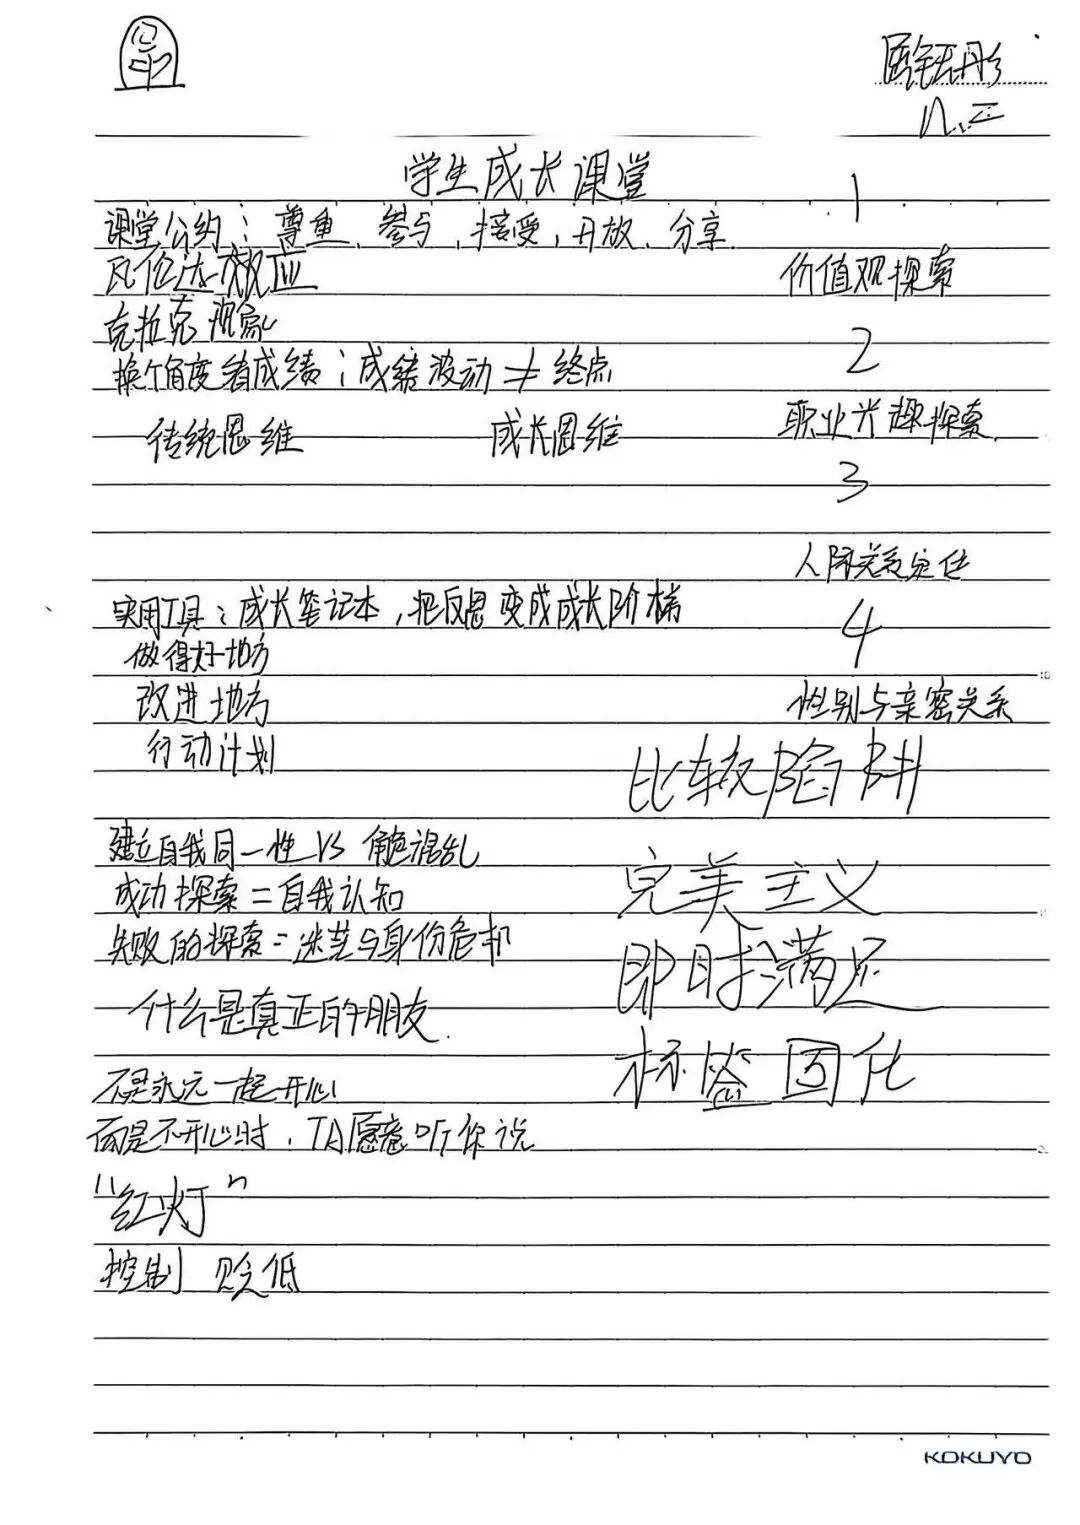 学生成长课堂
1
课堂公约：尊重、参与，接受，开放、分享
瓦伦达效应
价值观探索
克拉克现象
2
换个角度看成绩；成绩波动≠终点
传统思维 成长思维
职业兴趣探索
3
人际关系定位
实用工具：成长笔记本，把反思变成成长阶梯
4
做得好地方
改进地方
性别与亲密关系
行动计划
比较陷阱
建立自我同一性 VS 角色混乱
完美主义
成功探索=自我认知
失败的探索=迷茫与身份危机
即时满足
什么是真正的朋友.
标签固化
不是永远一起开心
而是不开心时，TA愿意听你说
“红灯”
控制 贬低
KOKUYO